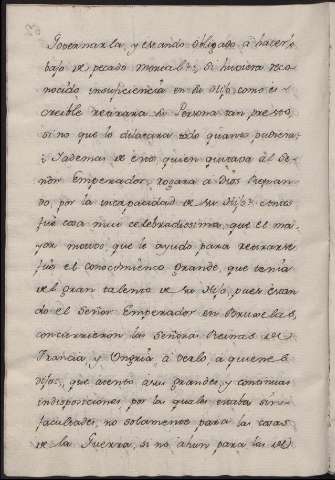 Governarla, y estando obligado á hacerlo
bajo de pecado mortal: Si huviera reco-
nocido insuficiencia en su Hijo como es
creible retirara su Persona tan presto,
si no que lo dilatara todo quanto pudiera:
Y ademas de esto quien quitava ál Se-
ñor Emperador, rogara á Dios
por la incapacidad de su Hijo? Antes
fue cosa mui celebradissima, que el ma-
yor motivo que le ayudo para retirarse
fue el conocimiento grande, que tenia
del gran talento de su Hijo, pues estan-
do el Señor Emperador en Bruselas,
concurrieron las Señoras Reinas de
Francia y Ungria à verlo, a quienes
dijo, que atento á sus grandes, y continuas
indisposiciones por las quales estaba sin
facultades, no solamente para las cosas
de la Guerra, si no ahun para las de